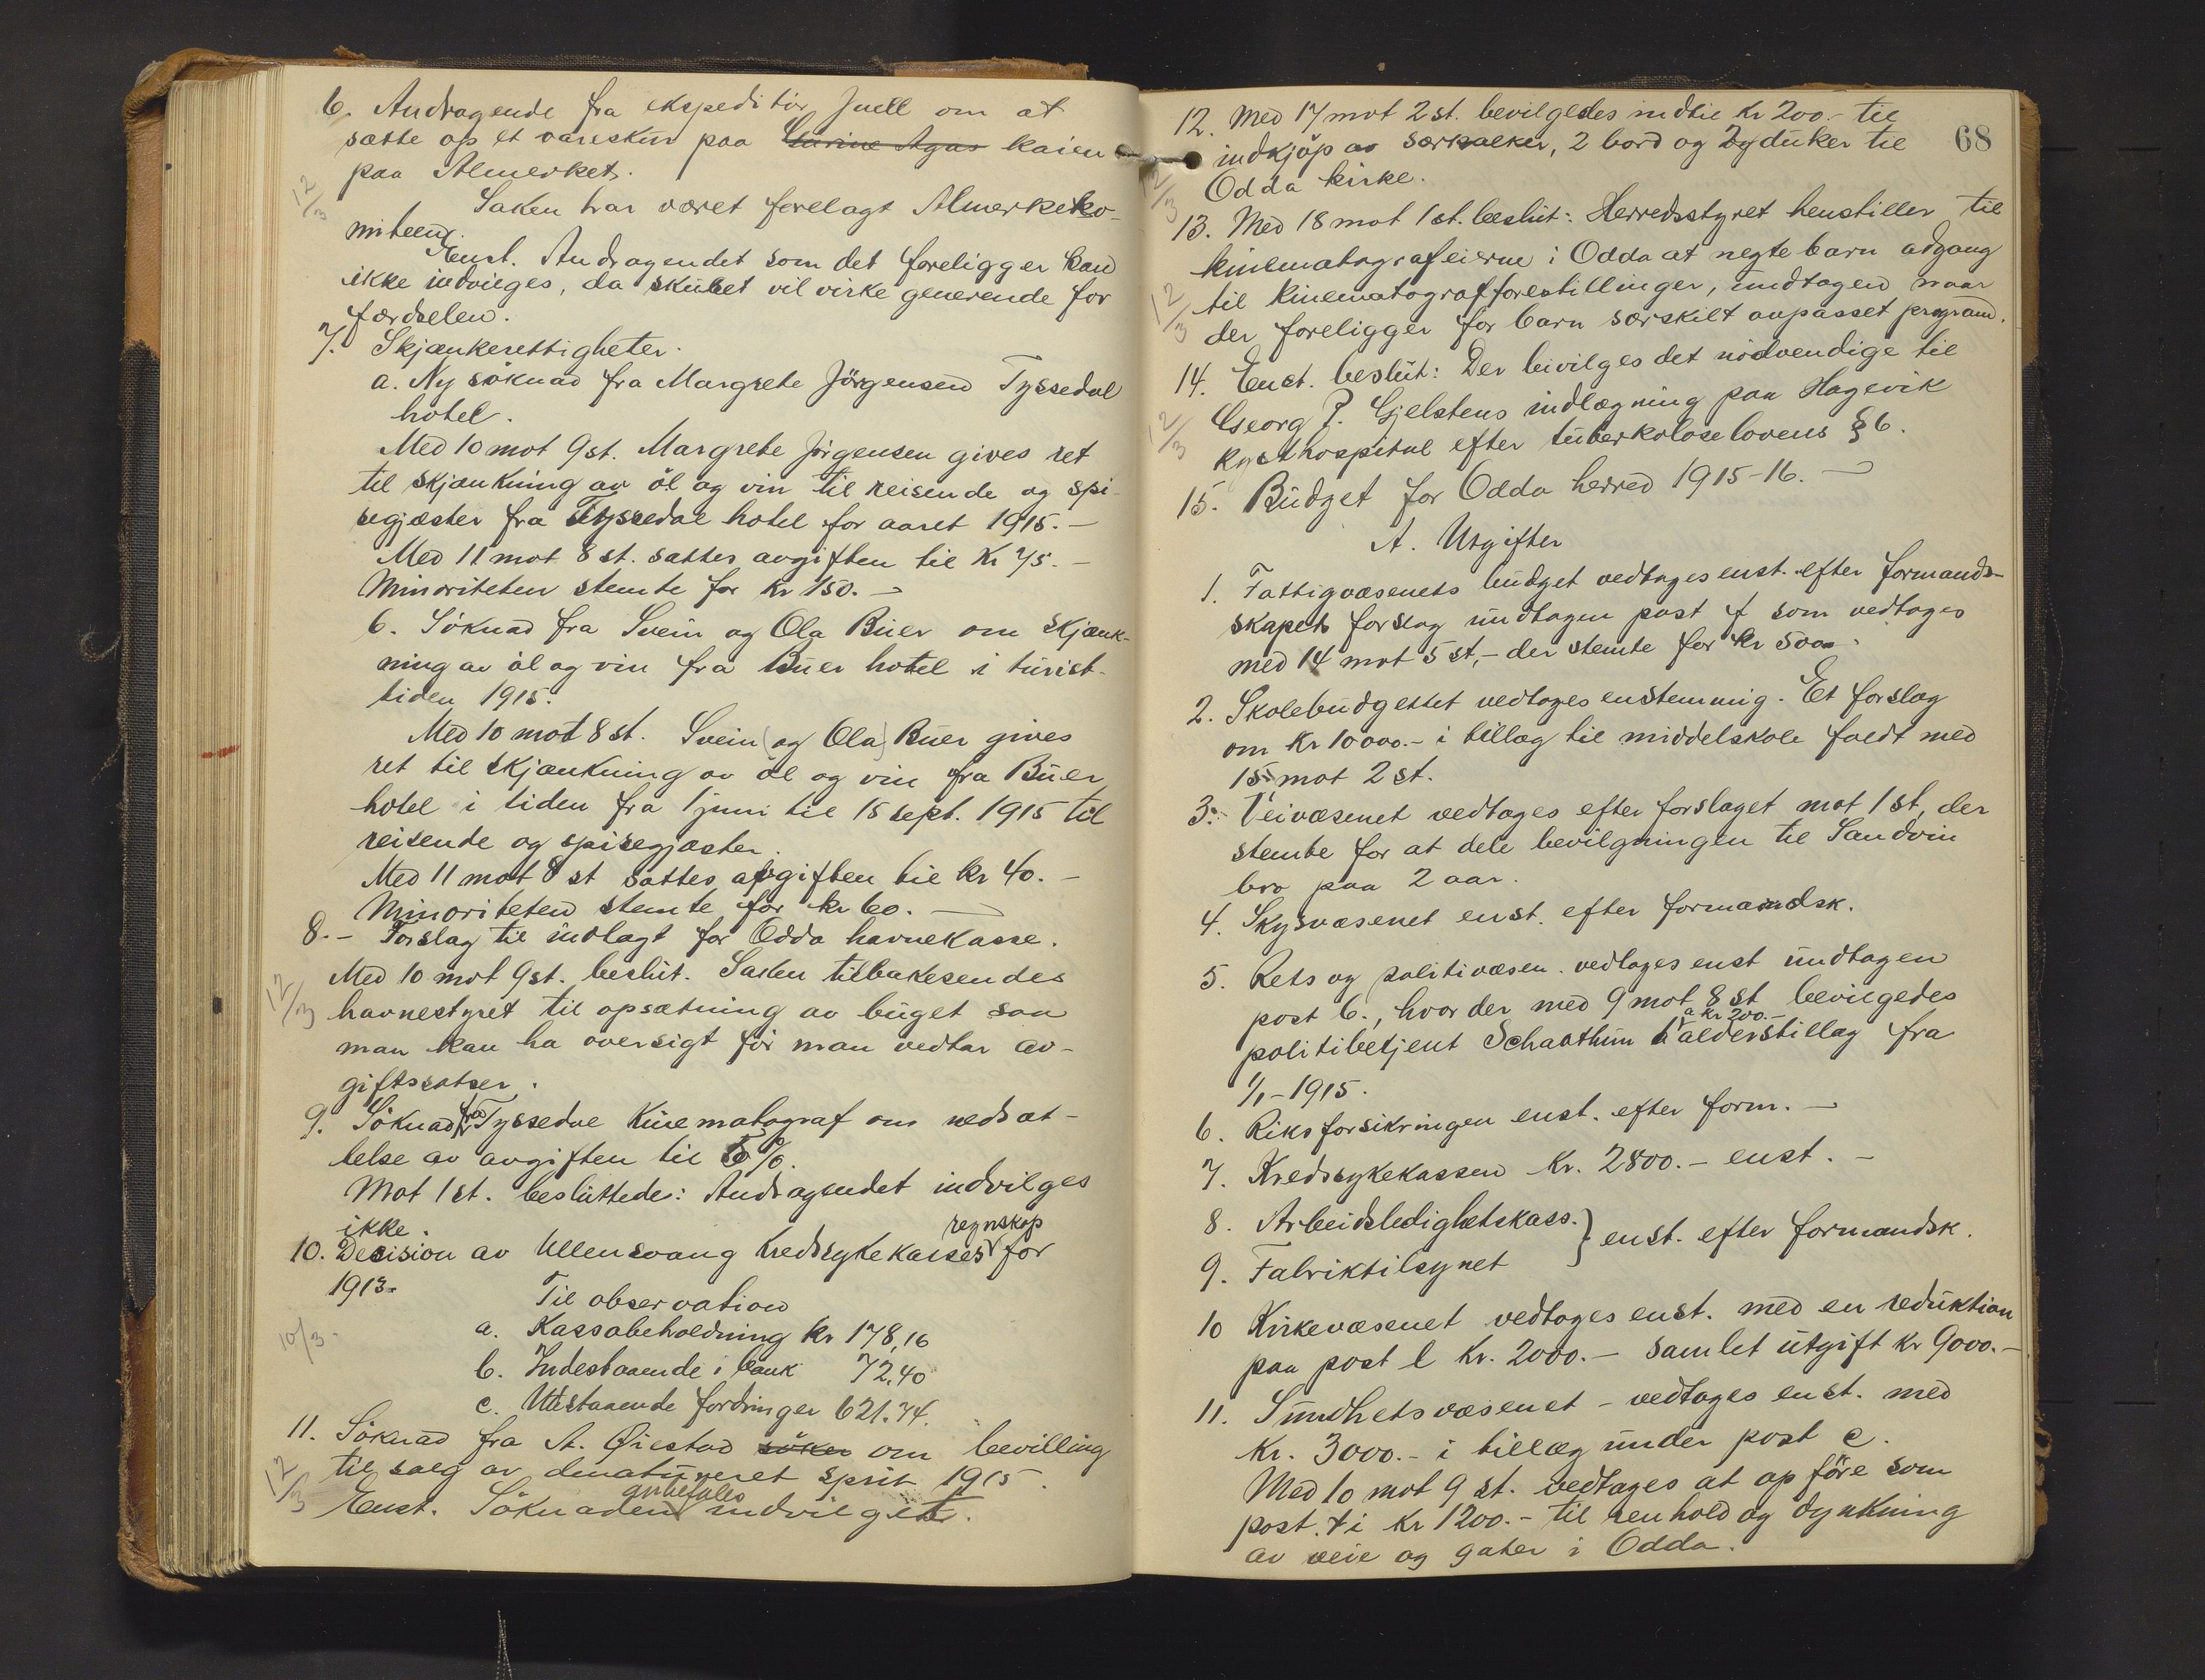 6. Andragende fra ekspeditör Juell om at
sætte op et vareskur paa Thrine Agas kaien
paa Almerket.
12/3
Saken har været forelagt Almerkeko-
miteen.
Enst. Andragendet som det foreligger kan
ikke indvilges, da skuret vil virke generende for
færdselen.
7. Skjænkerettigheter.
a. Ny söknad fra Margrete Jörgensen Tyssedal
hotel.
Med 10 mot 9 st. Margrete Jörgensen gives ret
til skjænkning av öl og vin til reisende og spi-
segjæster fra Tyssedal hotel for aaret 1915.-
Med 11 mot 8 st. sættes avgiften til Kr 75.-
Minoriteten stemte for kr 150.-
b. Söknad fra Svein og Ola Buer om skjænk-
ning av öl og vin fra Buer hotel i turist-
tiden 1915.
Med 10 mot 8 st. Svein (og Ola) Buer gives
ret til skjænkning av öl og vin fra Buer
hotel i tiden fra 1 juni til 15 sept. 1915 til
reisende og spisegjæster.
Med 11 mot 8 st sættes avgiften til kr 40.-
Minoriteten stemte for kr 60.-
8.- Forslag til indtægt for Odda havnekasse.
Med 10 mot 9 st. beslut. Saken tilbakesendes
12/3
havnestyret til opsætning av buget saa
man kan ha oversigt för man vedtar av-
giftssatser.
9. Söknad fra Tyssedal Kinematograf om nedsæt-
telse av avgiften til 5 %.
Mot 1 st. besluttedes: Andragendet indvilges
ikke.
10. Decision av Ullensvang Kredssykekasses regnskap for
1913.
Til observation
10/3.
a. Kassabeholdning kr 178,16
b. Indestaaende i bank 72,40
c. Utestaaende fordringer 621.74.
11. Söknad fra A. Øiestad söker om bevilling
12/3
til salg av denatureret sprit 1915.
Enst. Söknaden anbefales indvilget.
68
12. Med 17 mot 2 st. bevilgedes indtil kr 200.- til
indkjöp av særkalker, 2 bord og 2 duker til
12/3
Odda kirke.
13. Med 18 mot 1 st. beslut: Herredsstyret henstiller til
kinematografeierne i Odda at negte barn adgang
12/3
til kinematografforestillinger, undtagen naar
der foreligger for barn særskilt anpasset program.
14. Enst. beslut: Der bevilges det nödvendige til
12/3
Georg P. Gjelstens indlægning paa Hagevik
kysthospital efter tuberkuloselovens § 6.
15. Budget for Odda herred 1915-16.-
A. Utgifter
1. Fattigvæsenets budget vedtages enst. efter formand-
skapets forslag undtagen post f som vedtages
med 14 mot 5 st,- der stemte for kr 500.-
2. Skolebudgettet vedtages enstemmig. Et forslag
om kr 10000.- i tillæg til middelskole faldt med
15 mot 2 st.
3.- Veivæsenet vedtages efter forslaget mot 1 st, der
stemte for at dele bevilgningen til Sandvin
bro paa 2 aar.
4. Skysvæsenet enst. efter formandsk.
5. Rets og politivæsen. vedtages enst undtagen
post b., hvor der med 9 mot 8 st bevilgedes
politibetjent Schaathun 1 alderstillæg a kr 200.- fra
1/1-1915.
6. Riksforsikringen enst. efter form.-
7. Kredssykekassen Kr. 2800.- enst.-
8. Arbeidsledighetskass.
9. Fabriktilsynet } enst. efter formandsk.
10 Kirkevæsenet vedtages enst. med en reduktion
paa post l Kr. 2000.- Samlet utgift kr 9000.-
11. Sundhetsvæsenet - vedtages enst. med
Kr. 3000.- i tillæg under post c.
Med 10 mot 9 st. vedtages at opföre som
post. + i Kr 1200.- til renhold og dynkning
av veie og gater i Odda.